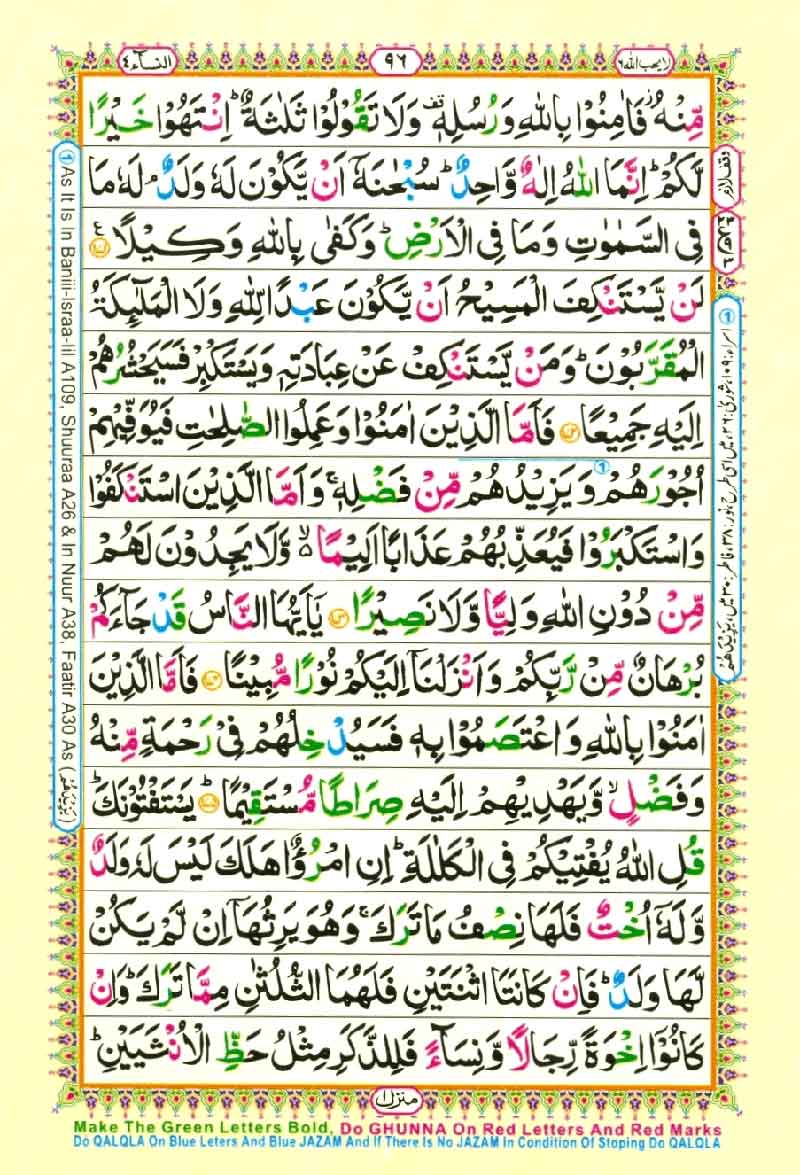 لا یحب اللّٰه ٦
٩٦
النسآء ٤
مِّنْهُ ۫ فَاٰمِنُوْا بِاللّٰهِ وَرُسُلِهٖ ۚ۫ وَلَا تَقُوْلُوْا ثَلٰثَةٌ ؕ اِنْتَهُوْا خَیْرًا
لَّكُمْ ؕ اِنَّمَا اللّٰهُ اِلٰهٌ وَّاحِدٌ ؕ سُبْحٰنَهٗۤ اَنْ یَّكُوْنَ لَهٗ وَلَدٌ ۘ لَهٗ مَا
فِی السَّمٰوٰتِ وَمَا فِی الْاَرْضِ ؕ وَكَفٰی بِاللّٰهِ وَكِیْلًا ﴿۱۷۱﴾
لَنْ یَّسْتَنْكِفَ الْمَسِیْحُ اَنْ یَّكُوْنَ عَبْدًا لِّلّٰهِ وَلَا الْمَلٰٓىِٕكَةُ
الْمُقَرَّبُوْنَ ؕ وَمَنْ یَّسْتَنْكِفْ عَنْ عِبَادَتِهٖ وَیَسْتَكْبِرْ فَسَیَحْشُرُهُمْ
اِلَیْهِ جَمِیْعًا ﴿۱۷۲﴾ فَاَمَّا الَّذِیْنَ اٰمَنُوْا وَعَمِلُوا الصّٰلِحٰتِ فَیُوَفِّیْهِمْ
اُجُوْرَهُمْ وَیَزِیْدُهُمْ مِّنْ فَضْلِهٖ ۚ وَاَمَّا الَّذِیْنَ اسْتَنْكَفُوْا
وَاسْتَكْبَرُوْا فَیُعَذِّبُهُمْ عَذَابًا اَلِیْمًا ۙ۬ وَّلَا یَجِدُوْنَ لَهُمْ
مِّنْ دُوْنِ اللّٰهِ وَلِیًّا وَّلَا نَصِیْرًا ﴿۱۷۳﴾ یٰۤاَیُّهَا النَّاسُ قَدْ جَآءَكُمْ
بُرْهَانٌ مِّنْ رَّبِّكُمْ وَاَنْزَلْنَاۤ اِلَیْكُمْ نُوْرًا مُّبِیْنًا ﴿۱۷۴﴾ فَاَمَّا الَّذِیْنَ
اٰمَنُوْا بِاللّٰهِ وَاعْتَصَمُوْا بِهٖ فَسَیُدْخِلُهُمْ فِیْ رَحْمَةٍ مِّنْهُ
وَفَضْلٍ ۙ وَّیَهْدِیْهِمْ اِلَیْهِ صِرَاطًا مُّسْتَقِیْمًا ﴿۱۷۵﴾ؕ یَسْتَفْتُوْنَكَ ؕ
قُلِ اللّٰهُ یُفْتِیْكُمْ فِی الْكَلٰلَةِ ؕ اِنِ امْرُؤٌا هَلَكَ لَیْسَ لَهٗ وَلَدٌ
وَّلَهٗۤ اُخْتٌ فَلَهَا نِصْفُ مَا تَرَكَ ۚ وَهُوَ یَرِثُهَاۤ اِنْ لَّمْ یَكُنْ
لَّهَا وَلَدٌ ؕ فَاِنْ كَانَتَا اثْنَتَیْنِ فَلَهُمَا الثُّلُثٰنِ مِمَّا تَرَكَ ؕ وَاِنْ
كَانُوْۤا اِخْوَةً رِّجَالًا وَّنِسَآءً فَلِلذَّكَرِ مِثْلُ حَظِّ الْاُنْثَیَیْنِ ؕ
وقف لازم
① As It Is In Baniii-Israa-Iil A109, Shuuraa A26 & In Nuur A38, Faatir A30 As (یَزِیْدَهُمْ)
منزل ١
Make The Green Letters Bold, Do GHUNNA On Red Letters And Red Marks
Do QALQLA On Blue Leters And Blue JAZAM And If There Is No JAZAM In Condition Of Stoping Do QALQLA